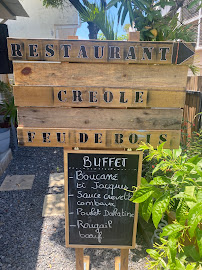 RESTAURANT
CREOLE
FEU DE BOIS
BUFFET
Boucané
St Jacques
Sauce crevette
combava
Poulet Pallatine
Rougail
boeuf